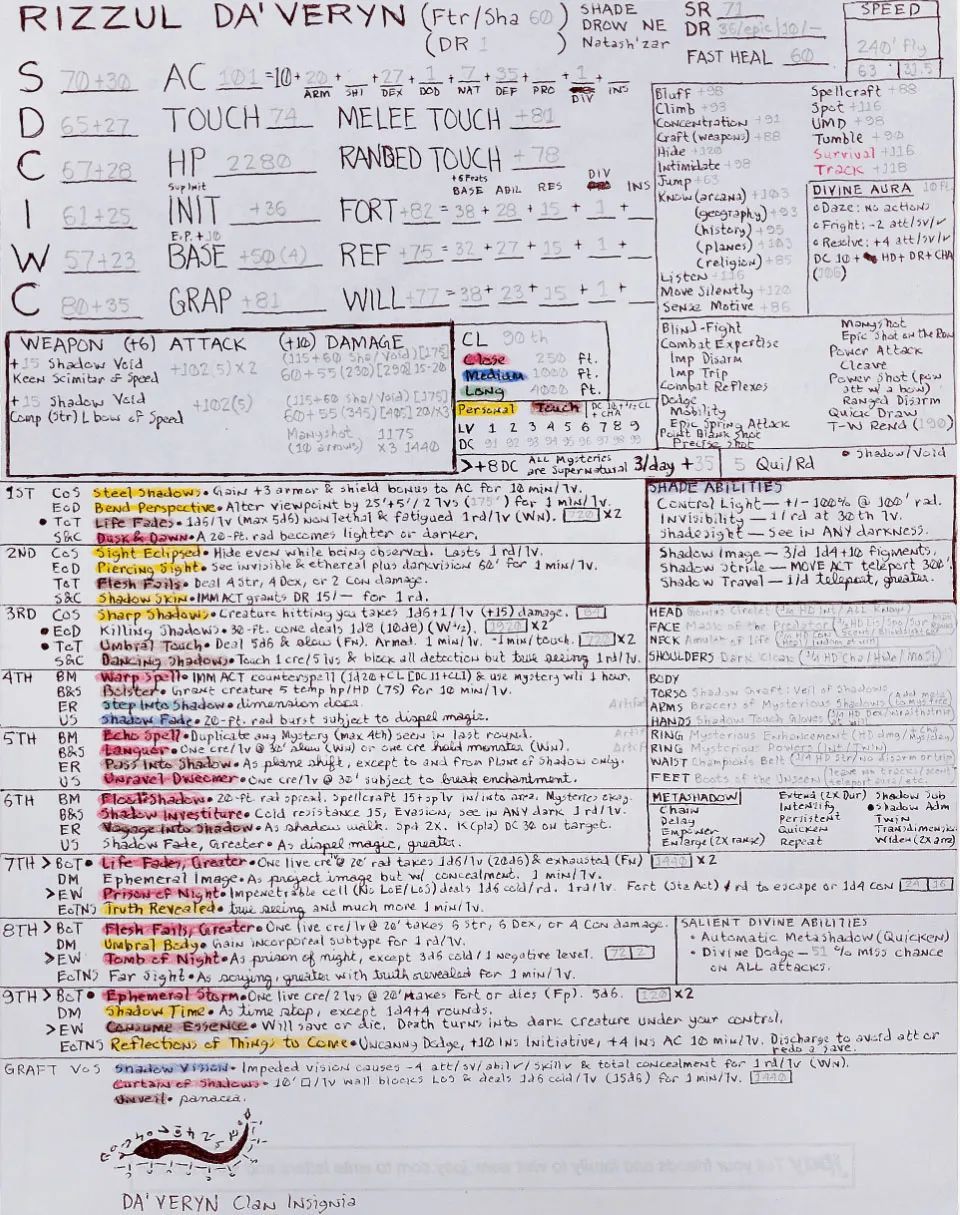 RIZZUL DA'VERYN (Ftr/Sha 60) SHADE SR 71 SPEED
(DR 1 ) DROW NE DR 36/epic|10/- 240' fly
Natash'zar FAST HEAL 60 63 | 31.5
S 70+30 AC 101 =10+20+_+27+1+7+35+_+1+_
ARM SHI DEX DOD NAT DEF PRO DIV INS
D 65+27 TOUCH 74 MELEE TOUCH +81
C 67+28 HP 2280 RANGED TOUCH +78
Sup Init +6 Feats DIV
BASE ABIL RES INS
I 61+25 INIT +36 FORT +82=38+28+15+1+
E.P. +10
W 57+23 BASE +50(4) REF +75=32+27+15+1+
C 80+35 GRAP +81 WILL +77=38+23+15+1+
Bluff +98
Climb +93
Concentration +91
Craft (weapons) +88
Hide +120
Intimidate +98
Jump +63
Know (arcana) +103
(geography) +93
(history) +95
(planes) +103
(religion) +85
Listen +116
Move Silently +120
Sense Motive +86
Spellcraft +88
Spot +116
UMD +98
Tumble +90
Survival +116
Track +118
DIVINE AURA 10 ft.
• Daze: no actions
• Fright: -2 att/sv/✓
• Resolve: +4 att/sv/✓
DC 10+ HD+DR+CHA
(106)
WEAPON (+6) ATTACK (+10) DAMAGE
+15 Shadow Void +102(5)X2 (115+60 Sha/Void)[175]
Keen Scimitar of Speed 60+55(230)[290]15-20
+15 Shadow Void +102(5) (115+60 Sha/Void)[175]
Comp (Str) L bow of Speed 60+55(345)[405]20/X3
Manyshot 1175
(10 arrows) X3 1440
CL 90 th
Close 250 ft.
Medium 1000 ft.
Long 4000 ft.
Personal Touch DC 10+½CL+CHA
LV 1 2 3 4 5 6 7 8 9
DC 91 92 93 94 95 96 97 98 99
>+8DC ALL Mysteries are Supernatural 3/day +35 5 Qui/Rd
Blind-Fight
Combat Expertise
Imp Disarm
Imp Trip
Combat Reflexes
Dodge
Mobility
Epic Spring Attack
Point Blank Shot
Precise Shot
Manyshot
Epic Shot on the Run
Power Attack
Cleave
Power Shot (pow att w/a bow)
Ranged Disarm
Quick Draw
T-W Rend (190)
• Shadow/Void
1ST CoS Steel Shadows• Gain +3 armor & shield bonus to AC for 10 min/lv.
EoD Bend Perspective• Alter viewpoint by 25'+5'/2 lvs (175') for 1 min/lv.
• ToT Life Fades• 1d6/lv (max 5d6) nonlethal & fatigued 1rd/lv (WN). 720 X2
S&C Dusk & Dawn• A 20-ft. rad becomes lighter or darker.
2ND CoS Sight Eclipsed• Hide even while being observed. Lasts 1 rd/lv.
EoD Piercing Sight• See invisible & ethereal plus darkvision 60' for 1 min/lv.
ToT Flesh Fails• Deal 4 Str, 4 Dex, or 2 Con damage.
S&C Shadow Skin• IMM ACT grants DR 15/- for 1 rd.
3RD CoS Sharp Shadows• Creature hitting you takes 1d6+1/lv (+15) damage. 84
• EoD Killing Shadows• 30-ft. cone deals 1d8 (10d8) (W½). 1920 X2
• ToT Umbral Touch• Deal 5d6 & slow (FN). Armat. 1 min/lv. -1 min/touch. 720 X2
S&C Dancing Shadows• Touch 1 cre/5 lvs & block all detection but true seeing 1rd/lv.
4TH BM Warp Spell• IMM ACT counterspell (1d20+CL [DC11+CL]) & use mystery w/i 1 hour.
B&S Bolster• Grant creature 5 temp hp/HD (75) for 10 min/lv.
ER Step Into Shadow• dimension door.
US Shadow Fade• 20-ft. rad burst subject to dispel magic.
5TH BM Echo Spell• Duplicate any Mystery (max 4th) seen in last round.
B&S Languor• One cre/lv @ 30' slow (WN) or one cre hold monster (WN).
ER Pass Into Shadow• As plane shift, except to and from Plane of Shadow only.
US Unravel Dweomer• One cre/lv @ 30' subject to break enchantment.
6TH BM Flood Shadow• 20-ft. rad spread. Spellcraft 15+sp lv in/into area. Mysteries okay.
B&S Shadow Investiture• Cold resistance 15, Evasion, see in ANY dark 1 rd/lv.
ER Voyage Into Shadow• As shadow walk. Spd 2x. K(pla) DC 30 on target.
US Shadow Fade, Greater• As dispel magic, greater.
7TH > BoT• Life Fades, Greater•One live cre @ 20' rad takes 1d6/lv (20d6) & exhausted (FN) 1440 X2
DM Ephemeral Image• As project image but w/ concealment. 1 min/lv.
>EW Prison of Night• Impenetrable cell (No LoE/LoS) deals 1d6 cold/rd. 1rd/lv. Fort (Sta Act) 4 rd to escape or 1d4 CON 24 16
EoTNS Truth Revealed• true seeing and much more 1 min/lv.
8TH > BoT Flesh Fails, Greater• One live cre/lv @ 20' takes 6 Str, 6 Dex, or 4 Con damage.
DM Umbral Body• Gain incorporeal subtype for 1 rd/lv.
>EW Tomb of Night•As prison of night, except 3d6 cold/1 negative level. 72 2
EoTNS Far Sight• As scrying, greater with truth revealed for 1 min/lv.
9TH > BoT• Ephemeral Storm•One live cre/2 lvs @ 20' makes Fort or dies (Fp). 5d6. 120 X2
DM Shadow Time• As time stop, except 1d4+4 rounds.
>EW Consume Essence• Will save or die. Death turns into dark creature under your control.
EoTNS Reflections of Things to Come•Uncanny Dodge, +10 Ins Initiative, +4 Ins AC 10 min/lv. Discharge to avoid att or redo a save.
GRAFT VoS Shadow Vision• Impeded vision causes -4 att/sv/abil✓/skill✓ & total concealment for 1 rd/lv (WN).
Curtain of Shadows• 10' □/lv wall blocks LoS & deals 1d6 cold/lv (15d6) for 1 min/lv. 1440
Unveil• panacea.
SHADE ABILITIES
Control Light— +/- 100% @ 100' rad.
Invisibility— 1/rd at 30th lv.
Shadesight— See in ANY darkness.
Shadow Image— 3/d 1d4+10 figments.
Shadow Stride— MOVE ACT teleport 300'.
Shadow Travel— 1/d teleport, greater.
HEAD Genius Circlet (¼ HD Int/ALL Know)
FACE Mask of the Predator
NECK Amulet of Life
SHOULDERS Dark Cloak (¼ HD Cha/Hide/MoSi)
BODY
TORSO Shadow Graft: Veil of Shadows
ARMS Bracers of Mysterious Shadows
HANDS Shadow Touch Gloves
RING Mysterious Enhancement
RING Mysterious Powers (Int/TWIN)
WAIST Champion's Belt (¼ HD Str/no disarm or trip)
FEET Boots of the Unseen
METASHADOW
Chain
Delay
Empower
Enlarge (2X range)
Extend (2X Dur)
Intensify
Persistent
Quicken
Repeat
Shadow Sub
•Shadow Adm
Twin
Transdimension
Widen (2X area)
SALIENT DIVINE ABILITIES
• Automatic Metashadow (Quicken)
• Divine Dodge— 51 % miss chance
on ALL attacks.
DA'VERYN Clan Insignia